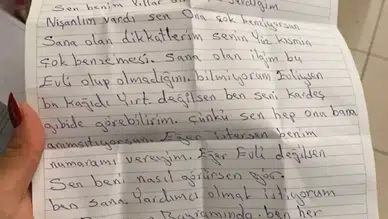 Sen benim Yıllar
Nişanlım vardı sen Ona çok benziyorsun
Sana olan dikkatlerim senin Yüz kısmın
Çok benzemesi. Sana olan ilgim bu
Evli olup olmadığını bilmiyorum Evliysen
bu kağıdı Yırt. değilsen ben seni kardeş
gibide görebilirim. Çünkü sen hep onu bana
anımsıtıyorsun. Eğer istersen benim
numaramı vereyim. Eğer Evli değilsen
Sen beni nasıl görürsen gör.
ben sana Yardımcı olmak istiyorum
Bayramında ben her